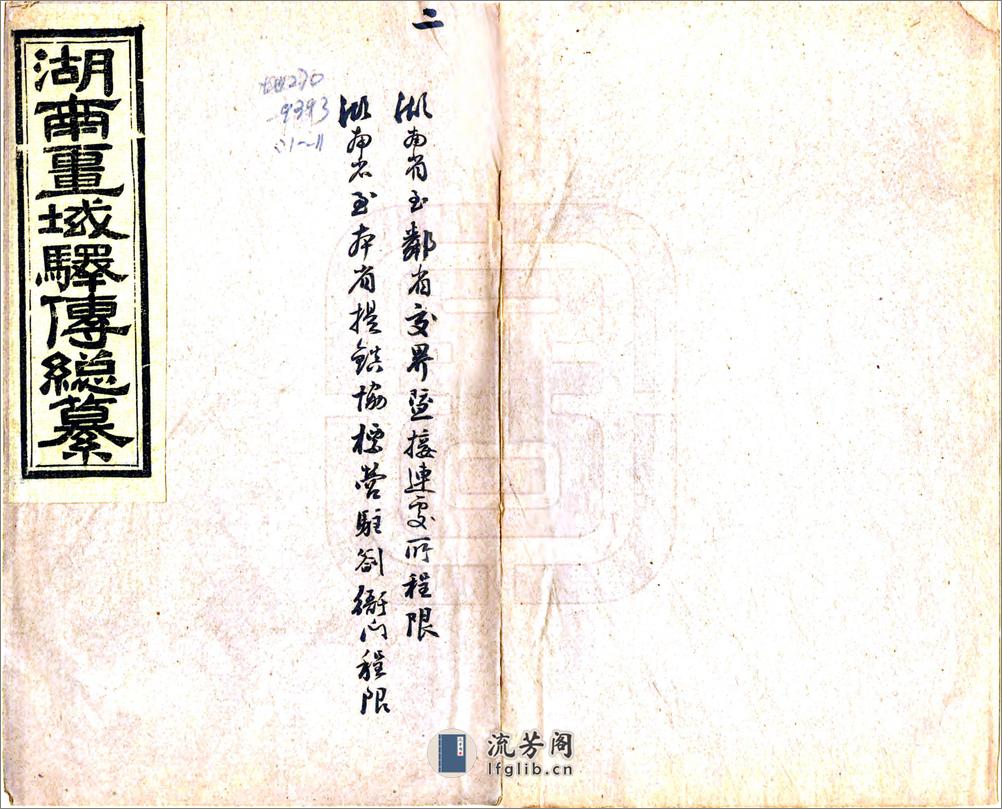 二
湖南省至鄰省交界暨接連處所程限
湖南省至本省提鎮協標營駐劄衙門程限
地270
9393
湖南畺域驛傳總纂
流芳阁
lfglib.cn